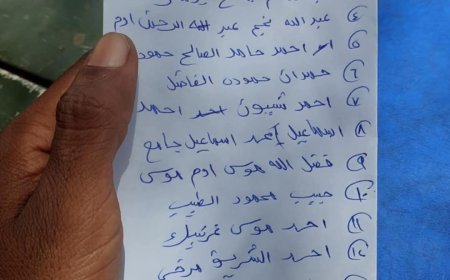 ٤ عبد الله نجم عبد الرحمن ادم
٥ احمد حامد الصالح حمود
٦ حمدان حمودن الفاضل
٧ احمد شيبون احمد احمد
٨ اسماعيل احمد اسماعيل جامع
٩ فضل الله موسى ادم موسى
١٠ حبيب محمود الطيب
١١ احمد موسى
١٢ احمد الشريف